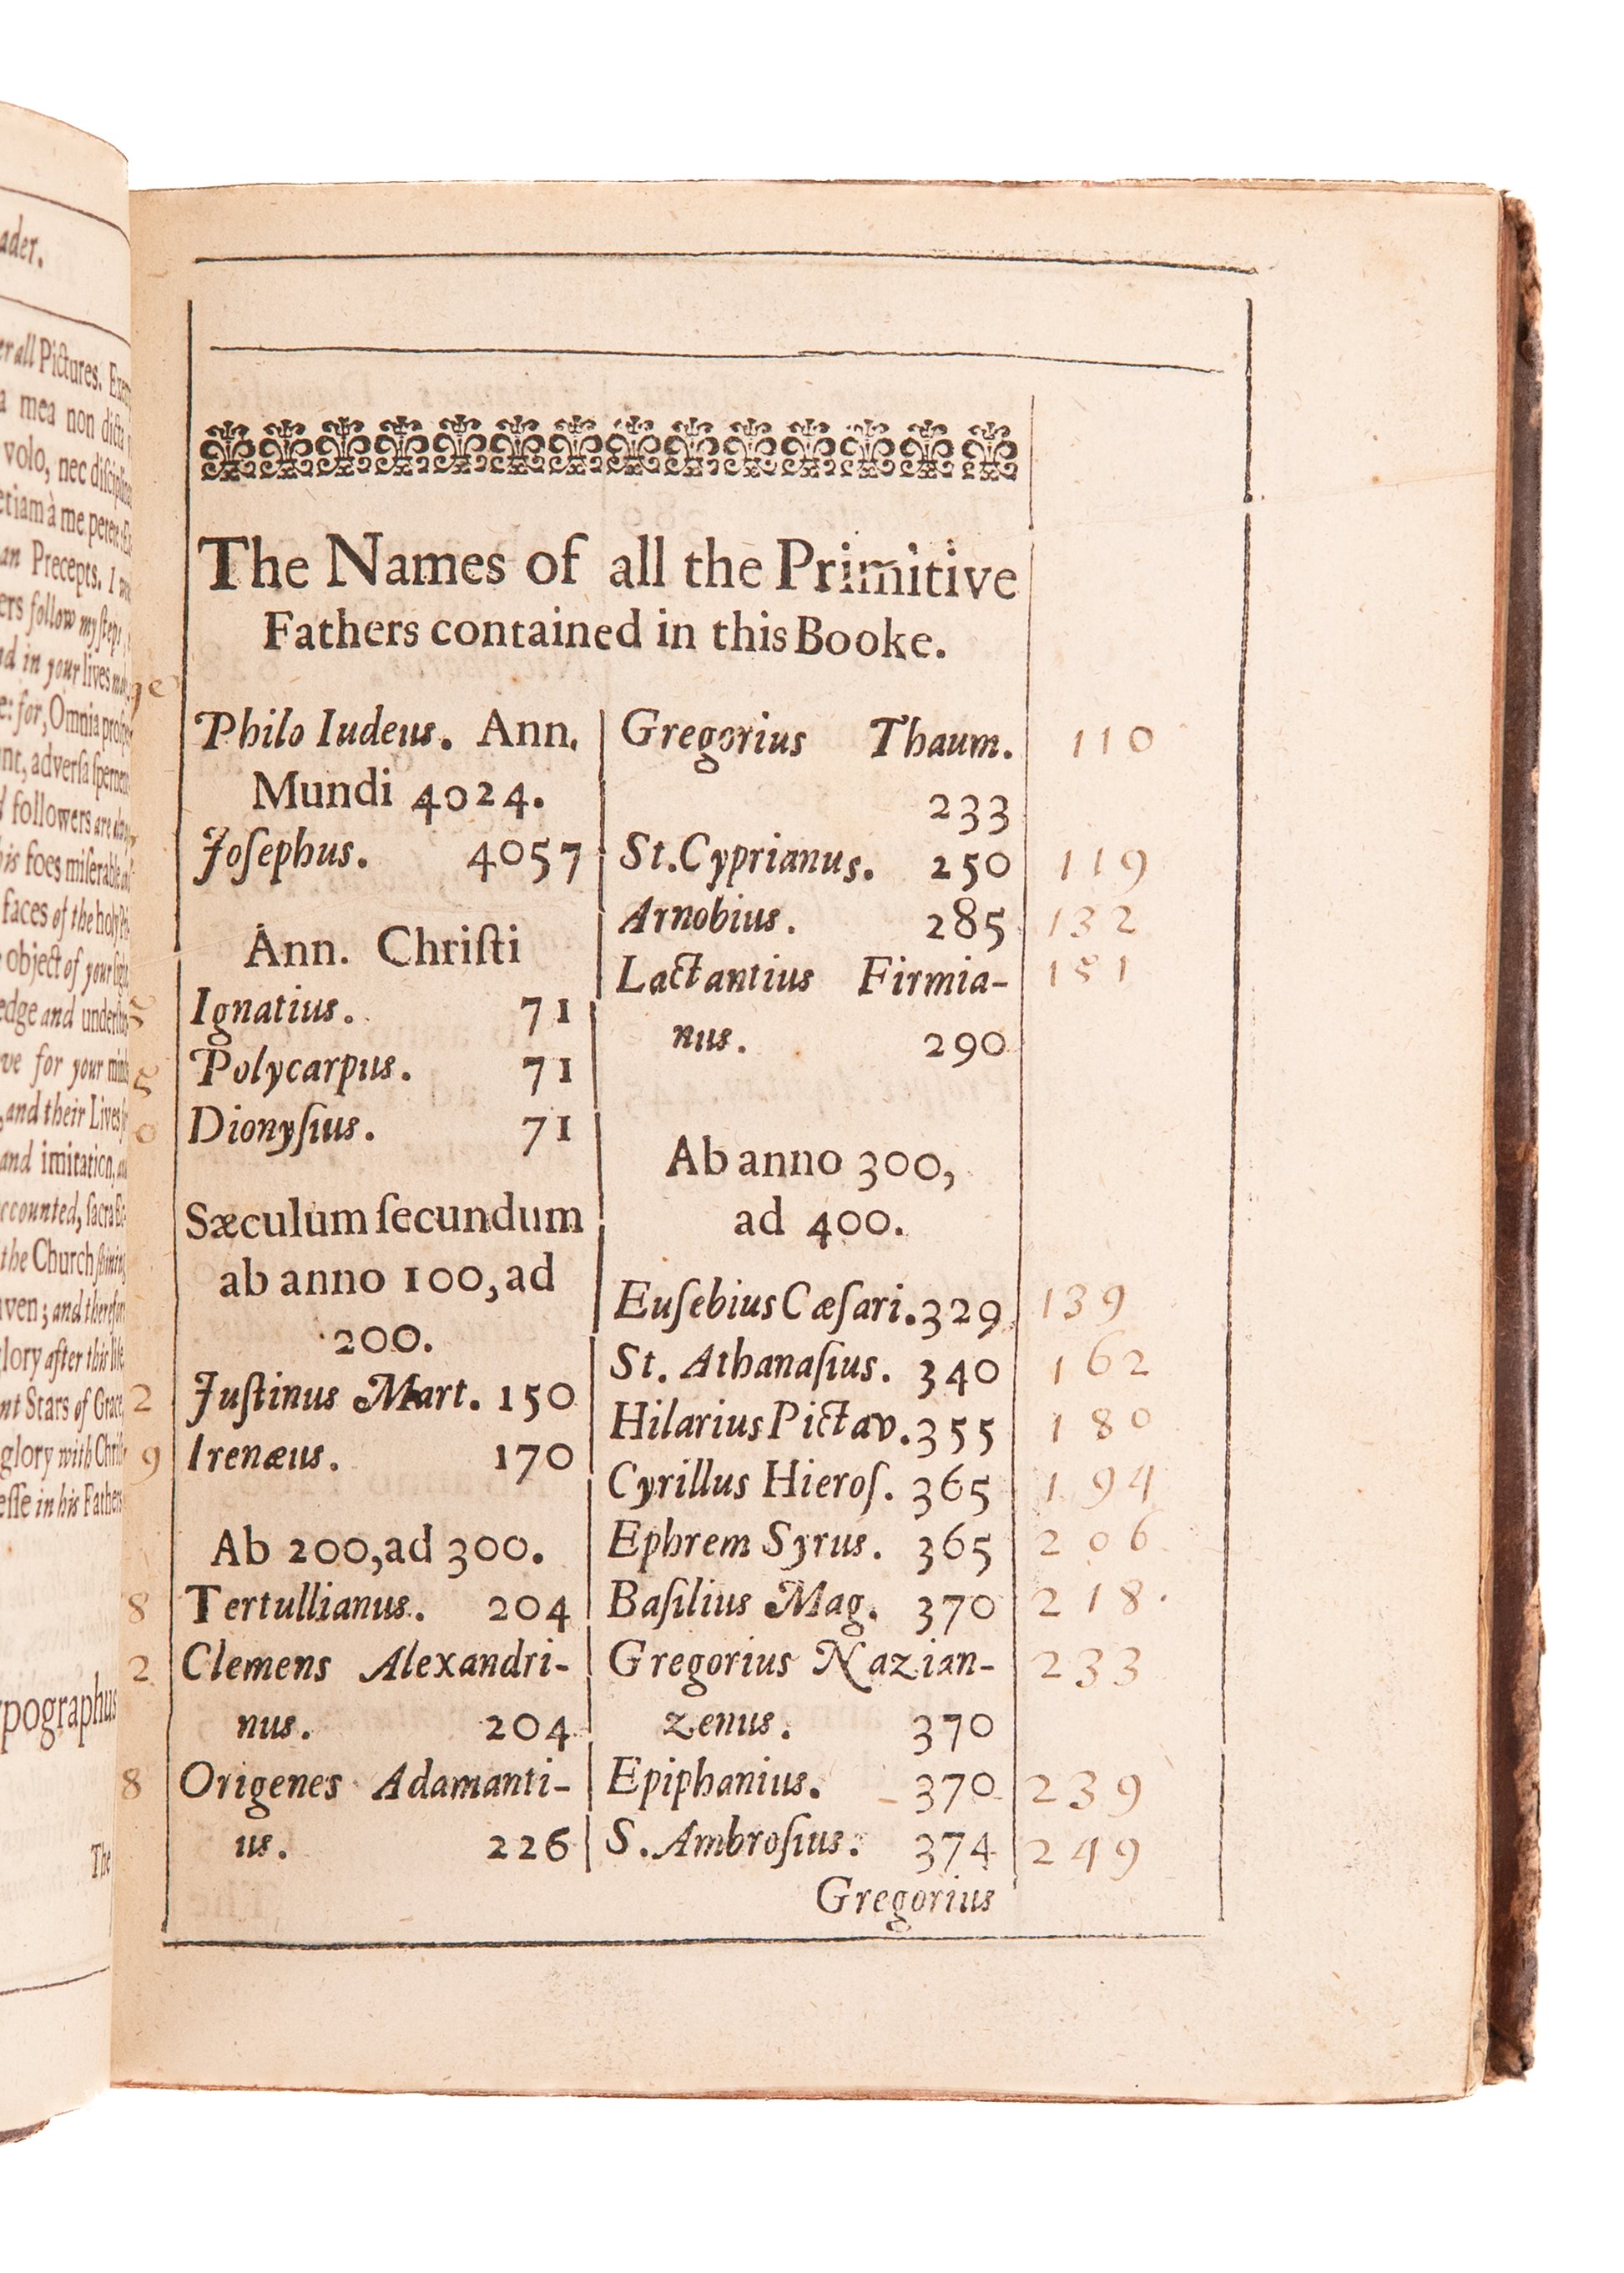 ader.
er all Pictures. Exem
a mea non dicta
volo, nec disciplin
etiam à me petere
an Precepts. I
ers follow my steps,
d in your lives
e: for, Omnia prosp
nt, adversa spernen
followers are
his foes miserable
faces of the holy
object of your
edge and under
ve for your mind
and their Lives
and imitation,
ccounted, sacra
the Church shining
ven; and therefore
lory after this life
nt Stars of Grace
glory with Christ
esse in his Fathers
ypographus
The
The Names of all the Primitive
Fathers contained in this Booke.
Philo Iudeus. Ann.
Mundi 4024.
Joſephus. 4057
Ann. Chriſti
Ignatius. 71
5 Polycarpus. 71
0 Dionyſius. 71
Sæculum ſecundum
ab anno 100, ad
200.
2 Juſtinus Mart. 150
9 Irenæus. 170
Ab 200, ad 300.
8 Tertullianus. 204
2 Clemens Alexandri-
nus. 204
8 Origenes Adamanti-
us. 226
Gregorius Thaum. 110
233
St. Cyprianus. 250 119
Arnobius. 285 132
Lactantius Firmia- 151
nus. 290
Ab anno 300,
ad 400.
Euſebius Cæſari. 329 139
St. Athanaſius. 340 162
Hilarius Pictav. 355 180
Cyrillus Hieroſ. 365 194
Ephrem Syrus. 365 206
Baſilius Mag. 370 218.
Gregorius Nazian- 233
zenus. 370
Epiphanius. 370 239
S. Ambroſius. 374 249
Gregorius